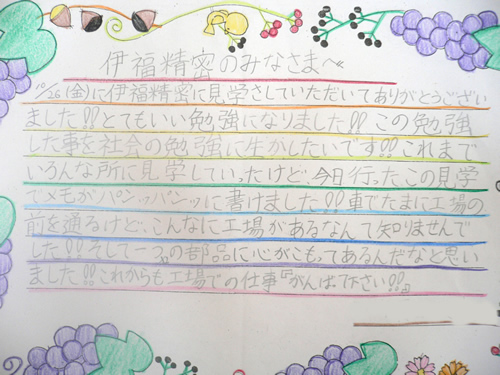 伊福精密のみなさまへ
10/26(金)に伊福精密に見学させていただいてありがとうござい
ました!!とてもいい勉強になりました!!この勉強
した事を社会の勉強に生かしたいです!!これまで
いろんな所に見学していったけど、今日行ったこの見学
でメモがパンッパンッに書けました!!車でたまに工場の
前を通るけど、こんなに工場があるなんて知りませんで
した!!そして一つ一つの部品に心がこもってあるんだなと思い
ました!!これからも工場での仕事がんばって下さい!!